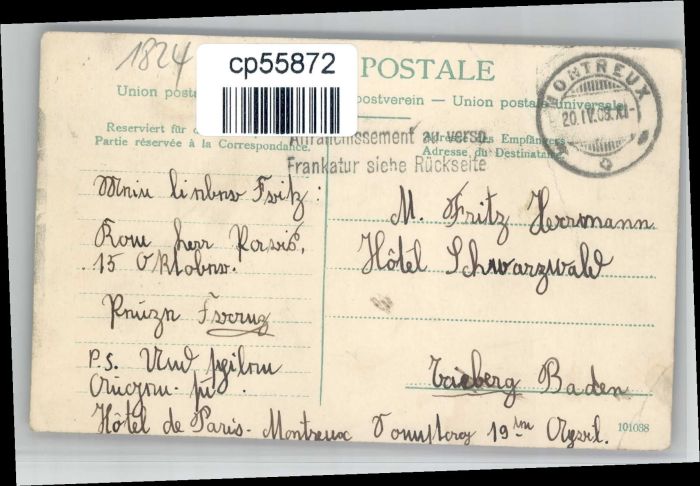 1824
cp55872
POSTALE
Union posta postverein — Union postale universelle
Reserviert für d Adresse des Empfängers
Partie réservée à la Correspondance. Adresse du Destinataire
Affranchissement au verso
Frankatur siehe Rückseite
MONTREUX
20.IV.09.XI
Mein lieber Fritz:
Kom herr Paris,
15 Oktober.
Franz
P.S. Und
M. Fritz Herrmann
Hôtel Schwarzwald
Triberg Baden
Hôtel de Paris. Montreux 19ten April.
101038